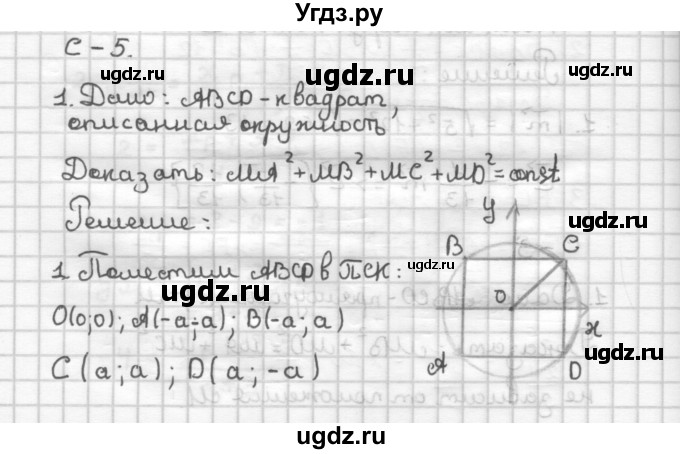 Угдз.ру
С-5.
ugdz.ru ugdz.ru ugdz.ru
1. Дано: ABCD-квадрат,
описанная окружность
ugdz.ru
Доказать: MA²+MB²+MC²+MD²=const
ugdz.ru
Решение:
y
ugdz.ru
B C
1. Поместим ABCD в ПСК:
ugdz.ru ugdz.ru
O
O(0;0); A(-a;-a); B(-a;a)
x
C(a;a); D(a;-a)
A D
ugdz.ru ugdz.ru
ugdz.ru